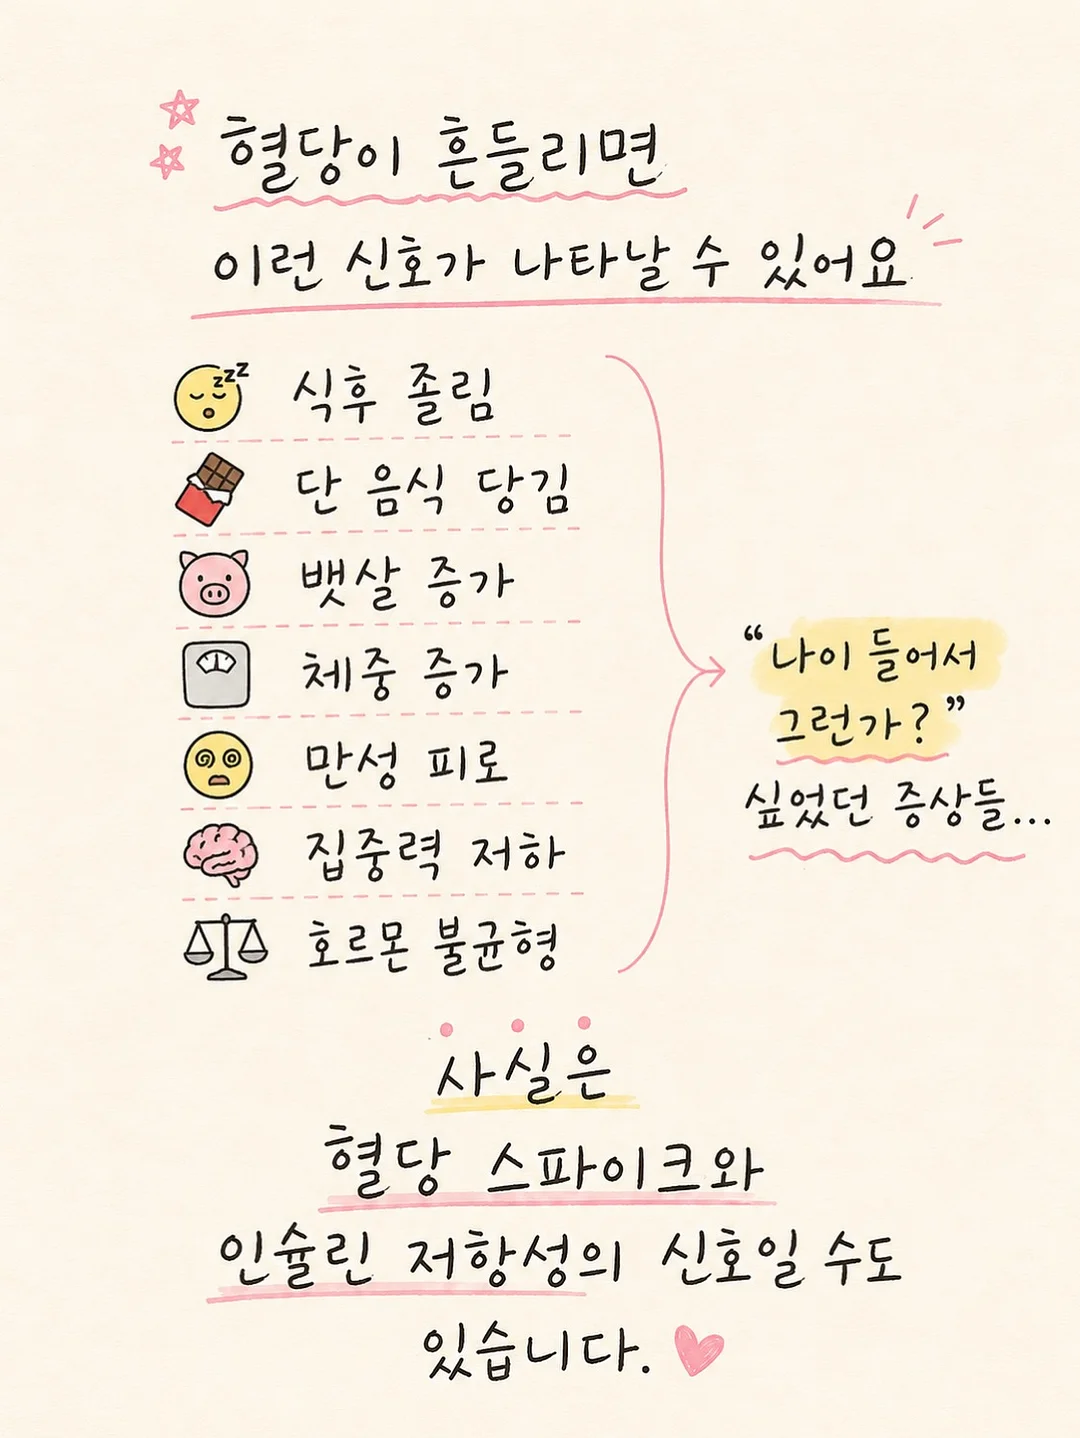 혈당이 흔들리면
이런 신호가 나타날 수 있어요.
zzZ
식후 졸림
단 음식 당김
뱃살 증가
체중 증가
만성 피로
집중력 저하
호르몬 불균형
“나이 들어서
그런가?”
싶었던 증상들...
사실은
혈당 스파이크와
인슐린 저항성의 신호일 수도
있습니다.